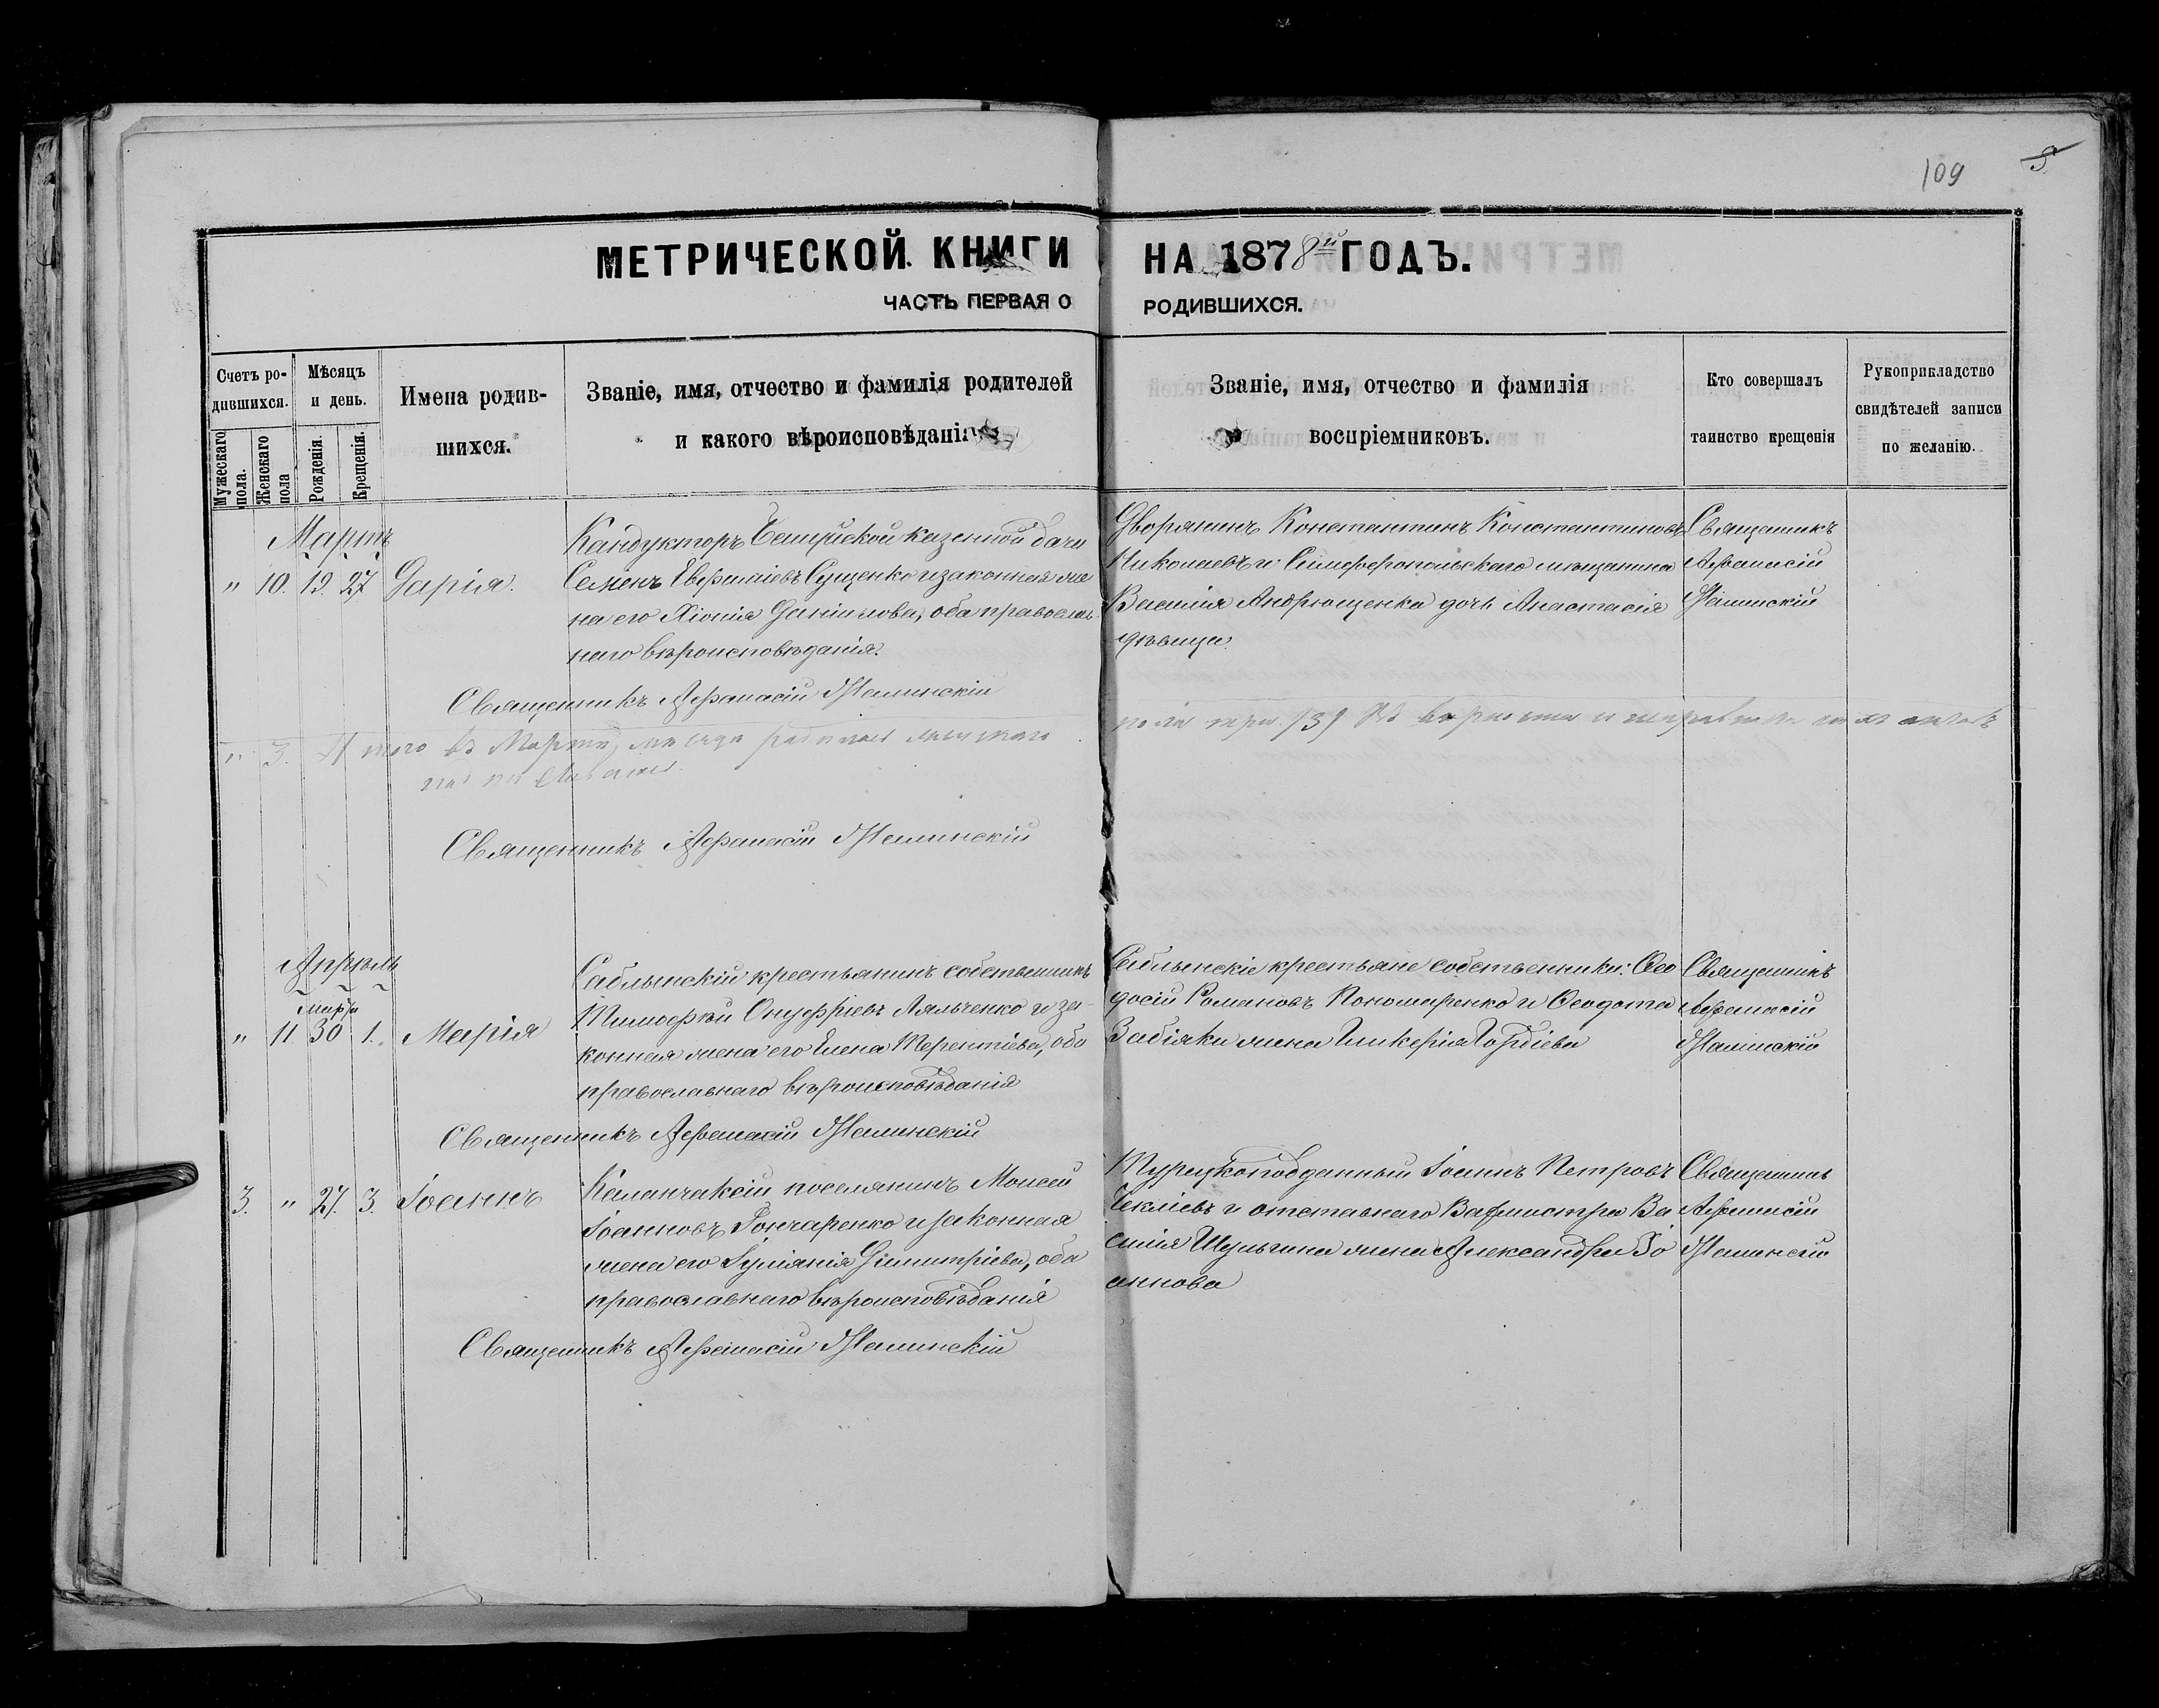 109
МЕТРИЧЕСКОЙ КНИГИ НА 1878й ГОДЪ.
ЧАСТЬ ПЕРВАЯ О РОДИВШИХСЯ.
Счетъ ро-
дившихся.
Мужескаго пола.
Женскаго пола
Мѣсяцъ
и день.
Рожденія.
Крещенія.
Имена родив-
шихся.
Званіе, имя, отчество и фамилія родителей
и какого вѣроисповѣданія
Званіе, имя, отчество и фамилія
воспріемниковъ.
Кто совершалъ
таинство крещенія
Рукоприкладство
свидѣтелей записи
по желанію.
Мартъ
" 10. 19. 27 Дарія.
Кандукторъ казенной дачи
Семенъ Сущенко и законная же
на его Хіонія Даніилова, оба православ
наго вѣроисповѣданія.
Дворянинъ Константинъ Константиновъ
Николаевъ и Симферопольскаго мѣщанина
Василія Андрющенка дочь Анастасія
дѣвица.
Священникъ
Аѳанасій
Священникъ Аѳанасій
" 3. Итого въ Мартѣ мѣсяцѣ родилось
пола три /3/
Священникъ Аѳанасій
Апрѣль
Марта
" 11 30 1. Марія
Саблынскій крестьянинъ собственникъ
Тимоѳей Онуфріевъ Ляльченко и за-
конная жена его Елена Терентіева, оба
православнаго вѣроисповѣданія
Саблынскіе крестьяне собственники: Ѳео
досій Романовъ Пономаренко и Ѳеодота
Забіяки жена Гликерія Гордіева
Священникъ
Аѳанасій
Священникъ Аѳанасій
3. " 27. 3. Іоаннъ
Каланчакскій поселянинъ Моисей
Іоанновъ Гончаренко и законная
жена его Іуліанія Димитріева, оба
православнаго вѣроисповѣданія
Турецкоподданный Іоаннъ Петровъ
и отставнаго Вахмистра Ва
силія Шульгина жена Александра Іо
аннова
Священникъ
Аѳанасій
Священникъ Аѳанасій